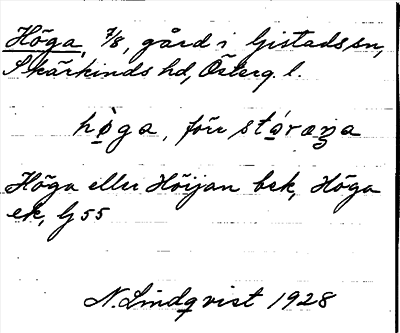 Höga, 7/8, gård i Gistads sn,
Skärkinds hd, Österg. l.
hø̀ga, förr stǿraŋa
Höga eller Höijan bek, Höga
ek, G 55
N. Lindqvist 1928